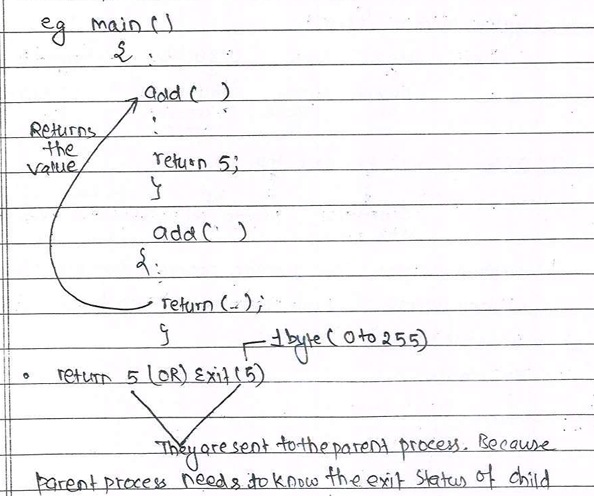 eg main()
{ :
add( )
:
Returns
the
value
return 5;
}
add( )
{ :
return (-);
}
1 byte (0 to 255)
• return 5 (OR) Exit(5)
They are sent to the parent process. Because
parent process needs to know the exit status of child